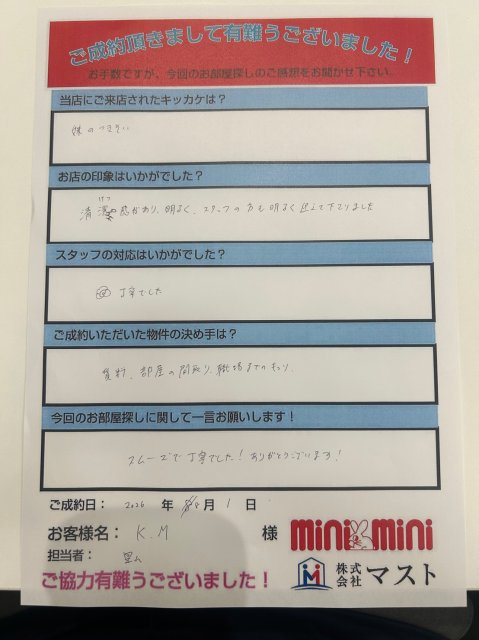 ご成約頂きまして有難うございました！
お手数ですが、今回のお部屋探しのご感想をお聞かせ下さい
当店にご来店されたキッカケは？
妹のつきそい
お店の印象はいかがでした？
清潔感があり、明るく、スタッフの方も明るく迎えて下さりました
スタッフの対応はいかがでした？
丁寧でした
ご成約いただいた物件の決め手は？
賃料、部屋の間取り、職場までのキョリ
今回のお部屋探しに関して一言お願いします！
スムーズで丁寧でした！ありがとうございます！
ご成約日： 2026 年 月 1 日
お客様名： K.M 様
担当者：
ご協力有難うございました！
mini mini
株式会社 マスト